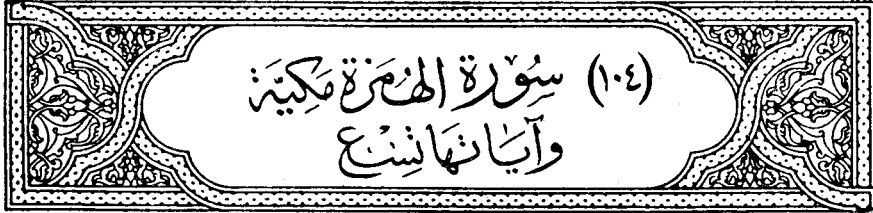 (١٠٤) سُوْرَةُ الهُمَزَةِ مَكِيَّةٌ
وَآيَاتُهَا تِسْعٌ